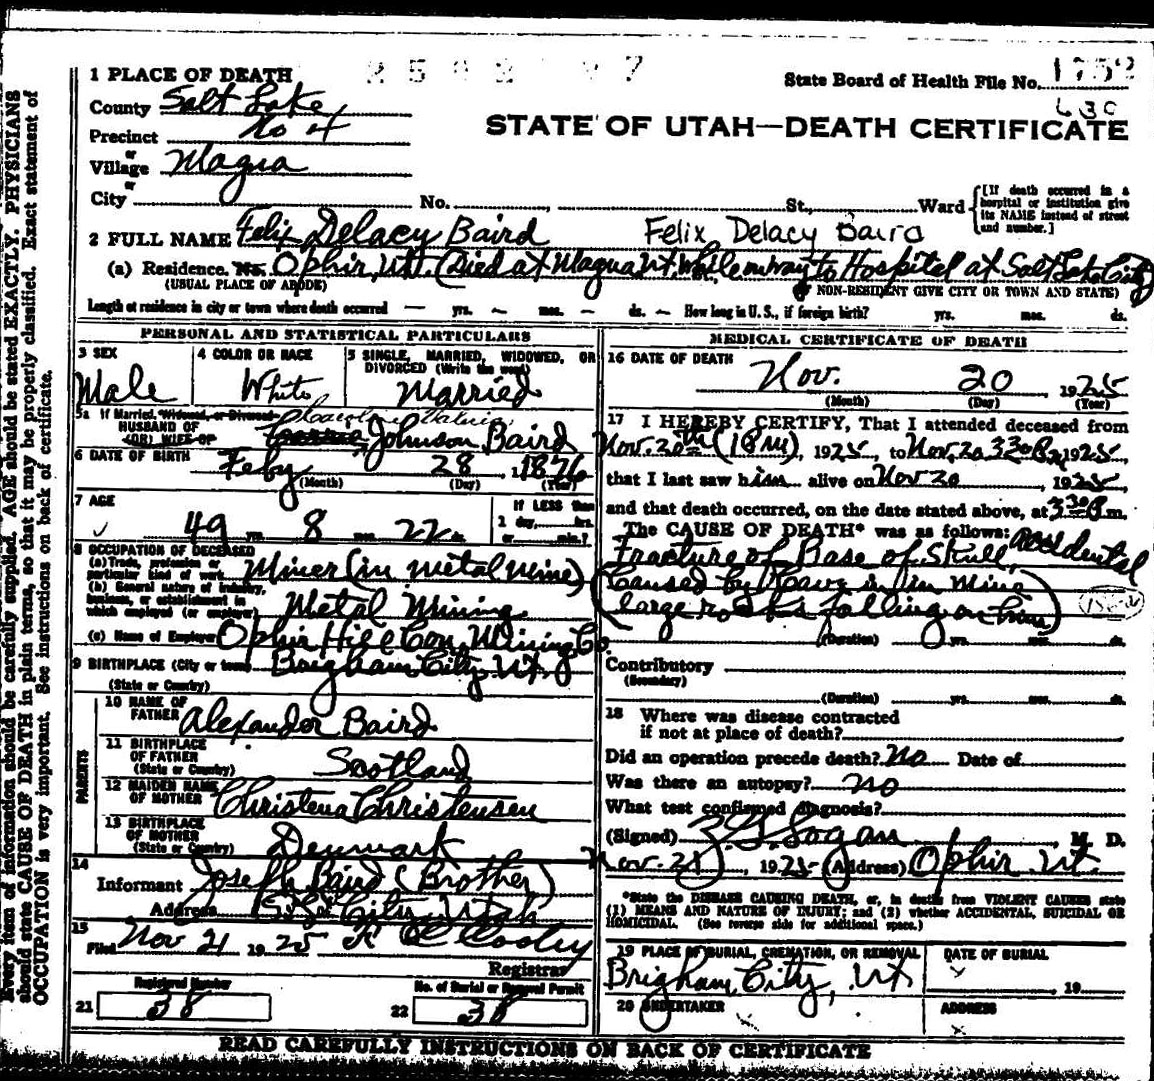 1 PLACE OF DEATH
State Board of Health File No. 1752
630
County Salt Lake
Precinct No 4
STATE OF UTAH—DEATH CERTIFICATE
or
Village Magna
or
City No. St., Ward
[If death occurred in a hospital or institution give its NAME instead of street and number.]
2 FULL NAME Felix Delacy Baird Felix Delacy Baird
(a) Residence. No. Ophir, Ut. (Died at Magna Ut. while enway to Hospital at Salt Lake City
(USUAL PLACE OF ABODE) (IF NON-RESIDENT GIVE CITY OR TOWN AND STATE)
Length of residence in city or town where death occurred — yrs. — mos. — ds. — How long in U. S., if foreign birth? yrs. mos. ds.
PERSONAL AND STATISTICAL PARTICULARS
3 SEX
Male
4 COLOR OR RACE
White
5 SINGLE, MARRIED, WIDOWED, OR DIVORCED (Write the word)
Married
5a If Married, Widowed, or Divorced
HUSBAND OF
(OR) WIFE OF
Johnson Baird
6 DATE OF BIRTH Feby 28 1876
(Month) (Day) (Year)
7 AGE
49 yrs. 8 mos. 22 ds.
If LESS than
1 day, hrs.
or min.?
8 OCCUPATION OF DECEASED
(a) Trade, profession or particular kind of work Miner (in metal mine)
(b) General nature of industry, business, or establishment in which employed (or employer) Metal Mining
(c) Name of Employer Ophir Hill Con. Mining Co.
9 BIRTHPLACE (City or town) Brigham City, Ut.
(State or Country)
PARENTS
10 NAME OF FATHER Alexander Baird
11 BIRTHPLACE OF FATHER
(State or Country) Scotland
12 MAIDEN NAME OF MOTHER Christena Christensen
13 BIRTHPLACE OF MOTHER
(State or Country) Denmark
14
Informant Joseph Baird (Brother)
Address City, Utah
15
Filed Nov 21 1925
Registrar
Registered Number
21 38
No. of Burial or Removal Permit
22 38
MEDICAL CERTIFICATE OF DEATH
16 DATE OF DEATH
Nov. 20 1925
(Month) (Day) (Year)
17 I HEREBY CERTIFY, That I attended deceased from
Nov. 20th (1 P.M), 1925, to Nov. 20 3 30 P. 1925,
that I last saw him alive on Nov 20, 1925,
and that death occurred, on the date stated above, at 3 30 P.m.
The CAUSE OF DEATH* was as follows: Accidental
Fracture of Base of Skull,
(Caused by Cave in in mine
large rocks falling on him)
(Duration) yrs. mos. ds.
Contributory
(Secondary)
(Duration) yrs. mos. ds.
18 Where was disease contracted
if not at place of death?
Did an operation precede death? No Date of
Was there an autopsy? no
What test confirmed diagnosis?
(Signed) M. D.
Nov. 21, 1925 (Address) Ophir Ut.
*State the DISEASE CAUSING DEATH, or, in deaths from VIOLENT CAUSES state
(1) MEANS AND NATURE OF INJURY; and (2) whether ACCIDENTAL, SUICIDAL OR
HOMICIDAL. (See reverse side for additional space.)
19 PLACE OF BURIAL, CREMATION, OR REMOVAL
Brigham City, Ut
DATE OF BURIAL
19
20 UNDERTAKER
ADDRESS
READ CAREFULLY INSTRUCTIONS ON BACK OF CERTIFICATE
Every item of information should be carefully supplied. AGE should be stated EXACTLY. PHYSICIANS
should state CAUSE OF DEATH in plain terms, so that it may be properly classified. Exact statement of
OCCUPATION is very important. See instructions on back of certificate.